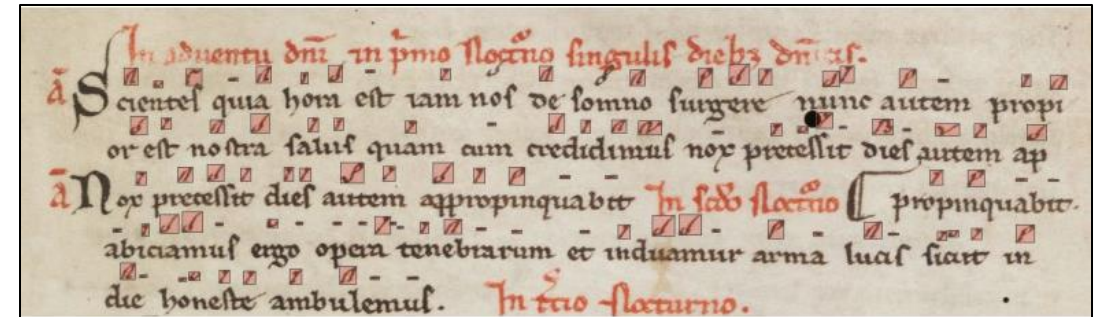 In aduentu dnī in p̄mo Noct̄no singulis dieb3 dnīcis.
ā Scientes quia hora est iam nos de somno surgere nunc autem propi
or est nostra salus quam cum credidimus nox precessit dies autem ap
ā Nox precessit dies autem appropinquabit In sc̄do Noct̄no propinquabit.
abiciamus ergo opera tenebrarum et induamur arma lucis sicut in
die honeste ambulemus. In t̄cio Nocturno.